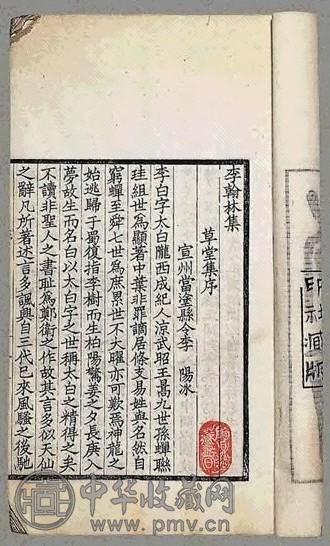 李翰林集
草堂集序
宣州當塗縣令李 陽冰
李白字太白隴西成紀人涼武昭王暠九世孫蟬聯
珪組世為顯著中葉非罪謫居條支易姓與名然自
窮蟬至舜七世為庶累世不大曜亦可歎焉神龍之
始逃歸于蜀復指李樹而生伯陽驚姜之夕長庚入
夢故生而名白以太白字之世稱太白之精得之矣
不讀非聖人之書恥為鄭衛之作故其言多似天仙
之辭凡所著述言多諷興自三代已來風騷之後馳
中华收藏网
www.pmv.cn